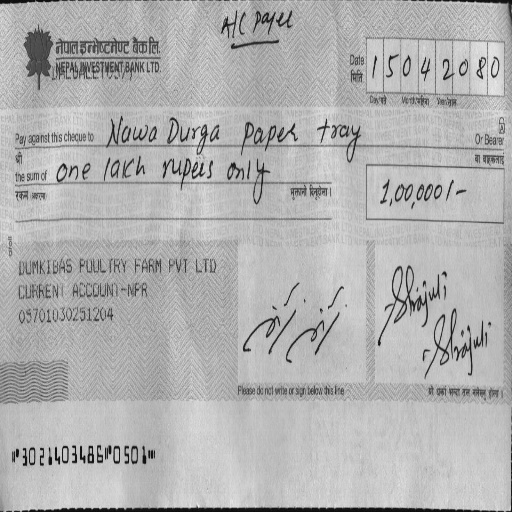 A/C Payee
नेपाल इन्भेष्टमेण्ट बैंक लि.
NEPAL INVESTMENT BANK LTD.
Date 15042080
मिति
Day/गते Month/महिना Year/साल
Pay against this cheque to Nawa Durga Paper tray Or Bearer
श्री वा वाहकलाई
the sum of one lakh rupees only
रकम (अक्षरमा) भुक्तानी दिनुहोला । 1,00,000/-
DUMKIBAS POULTRY FARM PVT LTD
CURRENT ACCOUNT-NPR
05701030251204
Shajuli
Shajuli
Please do not write or sign below this line
⑈3021403486⑈0501⑈